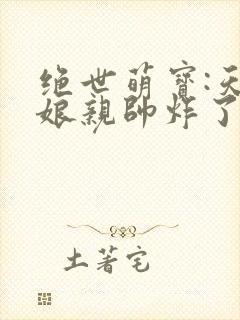 绝世萌寶:天
娘親帥炸了
土著宅